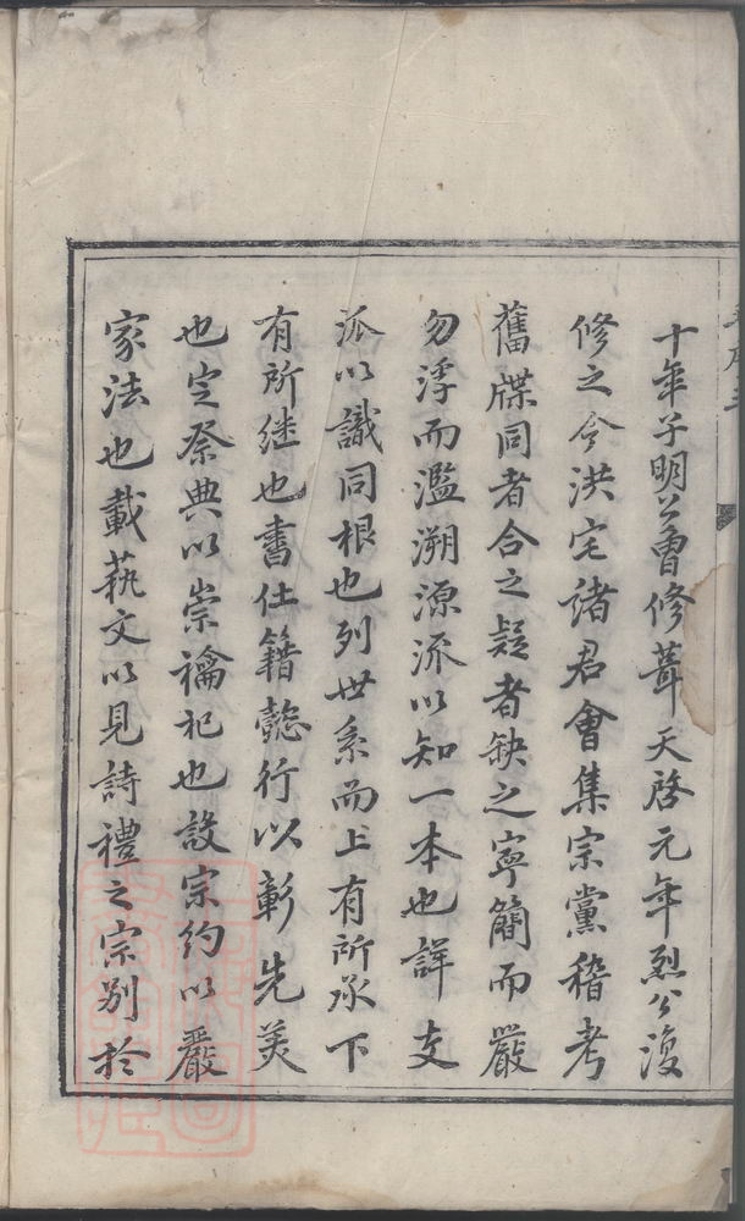 十年子明公曾修葺天啓元年烈公復
修之今洪宅諸君會集宗黨稽考
舊牒同者合之疑者缺之寧簡而嚴
勿浮而濫溯源流以知一本也詳支
派以識同根也列世系而上有所承下
有所继也書仕籍懿行以彰先美
也定祭典以崇禴祀也設宗約以嚴
家法也載蓺文以見詩禮之宗别於